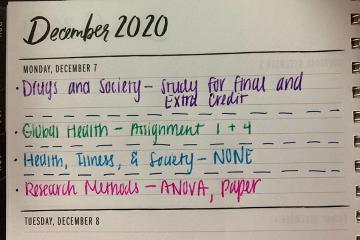 December 2020
MONDAY, DECEMBER 7
Drugs and Society - Study for final and
Extra Credit
Global Health - Assignment 1 + 4
Health, Illness, & Society - NONE
Research Methods - ANOVA, paper
TUESDAY, DECEMBER 8